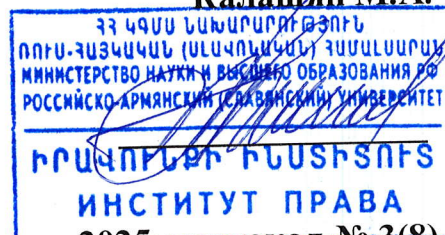 Калашян М.А.
ՀՀ ԿԳՄՍ ՆԱԽԱՐԱՐՈՒԹՅՈՒՆ
ՌՈՒՍ-ՀԱՅԿԱԿԱՆ (ՍԼԱՎՈՆԱԿԱՆ) ՀԱՄԱԼՍԱՐԱՆ
МИНИСТЕРСТВО НАУКИ И ВЫСШЕГО ОБРАЗОВАНИЯ РФ
РОССИЙСКО-АРМЯНСКИЙ (СЛАВЯНСКИЙ) УНИВЕРСИТЕТ
ԻՐԱՎՈՒՆՔԻ ԻՆՍՏԻՏՈՒՏ
ИНСТИТУТ ПРАВА
2025 № 3(8)